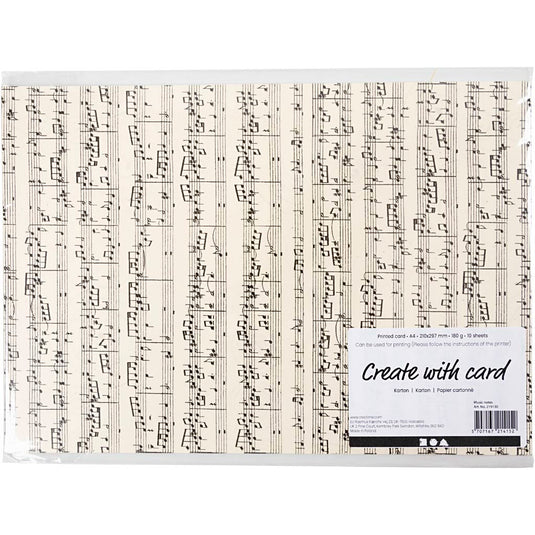 Printed card • A4 • 210x297 mm • 180 g • 10 sheets
Can be used for printing (Please follow the instructions of the printer)
Create with card
Karton | Karton | Papier cartonné
Music notes
Made in Poland